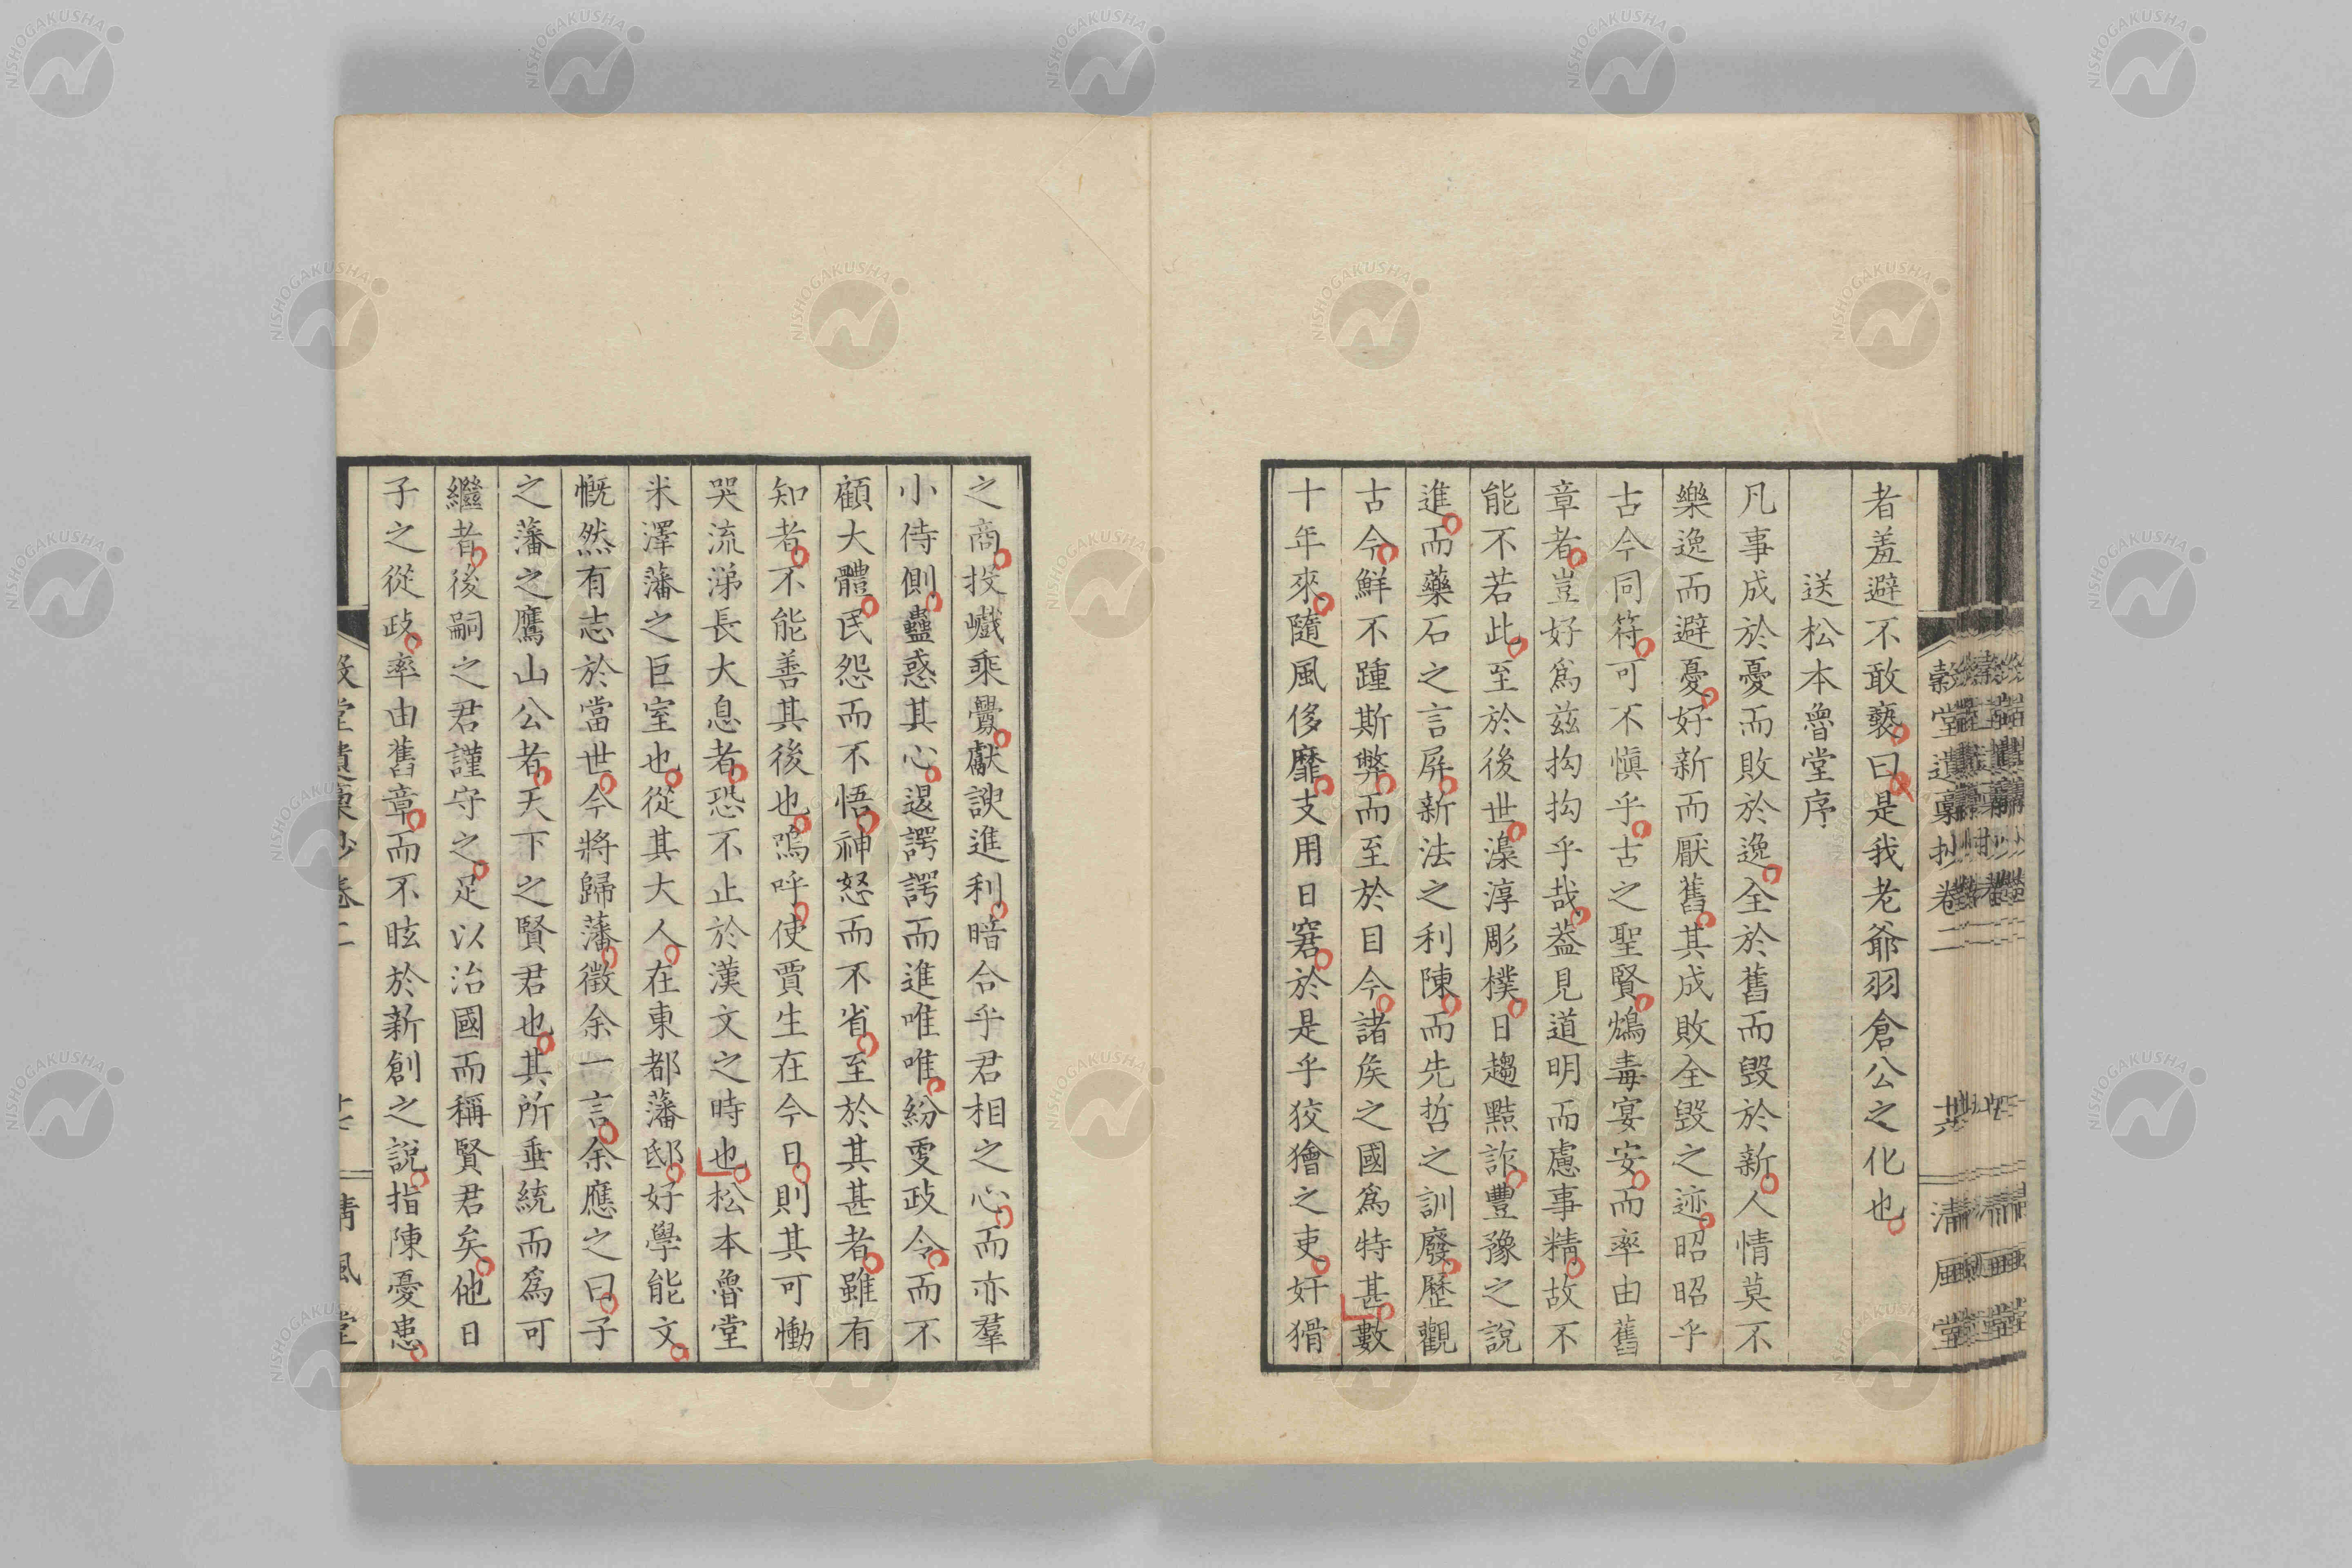 者羞避不敢褻曰是我老爺羽倉公之化也
送松本魯堂序
凡事成於憂而敗於逸全於舊而毀於新人情莫不
樂逸而避憂好新而厭舊其成敗全毀之迹昭昭乎
古今同符可不愼乎古之聖賢鴆毒宴安而率由舊
章者豈好爲茲拘拘乎哉葢見道明而慮事精故不
能不若此至於後世澡淳彫樸日趨黠詐豐豫之說
進而藥石之言屏新法之利陳而先哲之訓廢歷觀
古今鮮不踵斯弊而至於目今諸矦之國爲特甚數
十年來隨風侈靡支用日窘於是乎狡獪之吏奸猾
之商投巇乘釁獻諛進利暗合乎君相之心而亦羣
小侍側蠱惑其心遏諤諤而進唯唯紛更政令而不
顧大體民怨而不悟神怒而不省至於其甚者雖有
知者不能善其後也嗚呼使賈生在今日則其可慟
哭流涕長大息者恐不止於漢文之時也松本魯堂
米澤藩之巨室也從其大人在東都藩邸好學能文
慨然有志於當世今將歸藩徵余一言余應之曰子
之藩之鷹山公者天下之賢君也其所垂統而爲可
繼者後嗣之君謹守之足以治國而稱賢君矣他日
子之從政率由舊章而不眩於新創之說指陳憂患
穀堂遺稾抄卷二
清風堂
NISHOGAKUSHA